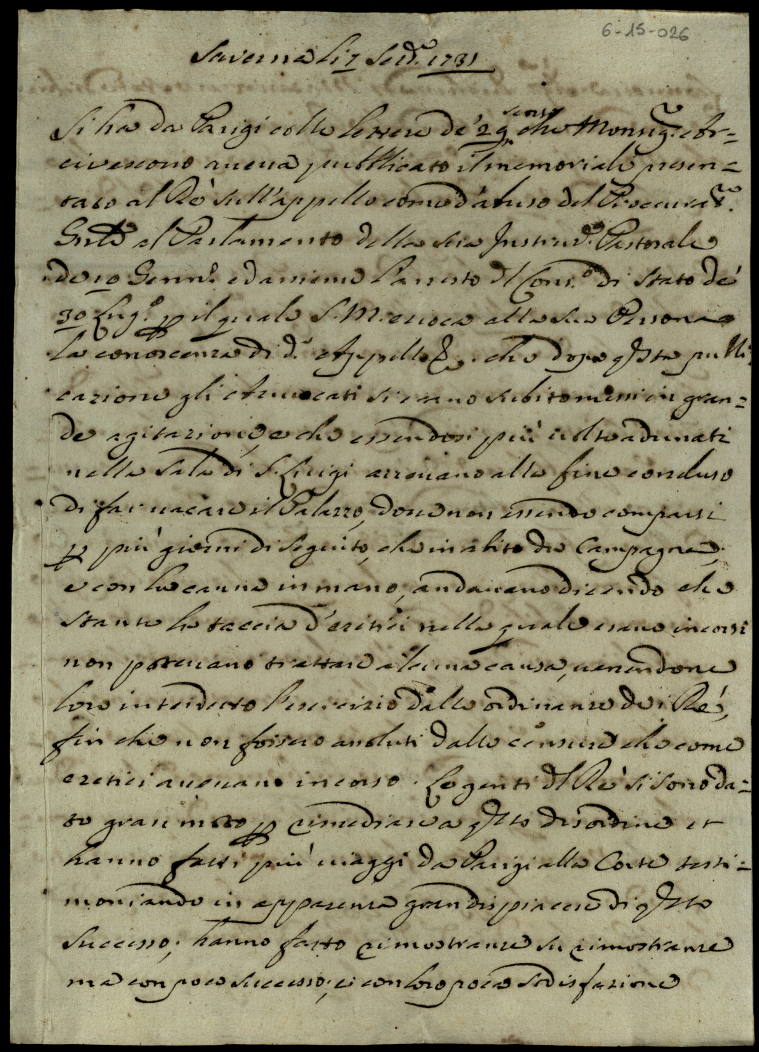 6-15-026
Saverna li 7 Sett.e 1731
Si ha da Parigi colle lettere de' 29 scorso che Monsig.re Ar=
civescovo aveva pubblicato il memoriale presen=
tato al Ré sull'appello come d'abuso del Procurat.re
Gnle al Parlamento della sua Instruz.e Pastorale
de 10 Genn.o ed assieme l'arresto dl Cons.o di Stato de'
30 Lug.o p il quale S. M. evoca alla sua Persona
la conoscenza di d.o Appello che dopo qsta pubbli=
cazione gli Avvocati si erano subito messi in gran=
de agitazione, e che essendosi più volte adunati
nella Sala di S. Luigi avevano alla fine concluso
di far vacare il Palazzo, dove non essendo comparsi
p più giorni di seguito, che in abito di Campagna,
e con la canna in mano, andavano dicendo che
stante la taccia d'eretici nella quale erano incorsi
non potevano trattare alcuna causa, venendone
loro interdetto l'esercizio dalle ordinanze dei Ré,
fin che non fossero assoluti dalle censure che come
eretici avevano incorso. Le genti dl Ré si sono da=
te gran moto p rimediare a qsto disordine et
hanno fatti più viaggi da Parigi alla Corte testi=
moniando in apparenza gran dispiacere di qsto
successo; hanno fatto rimostranze su rimostranze
ma con poco successo, e con loro poca sodisfazione